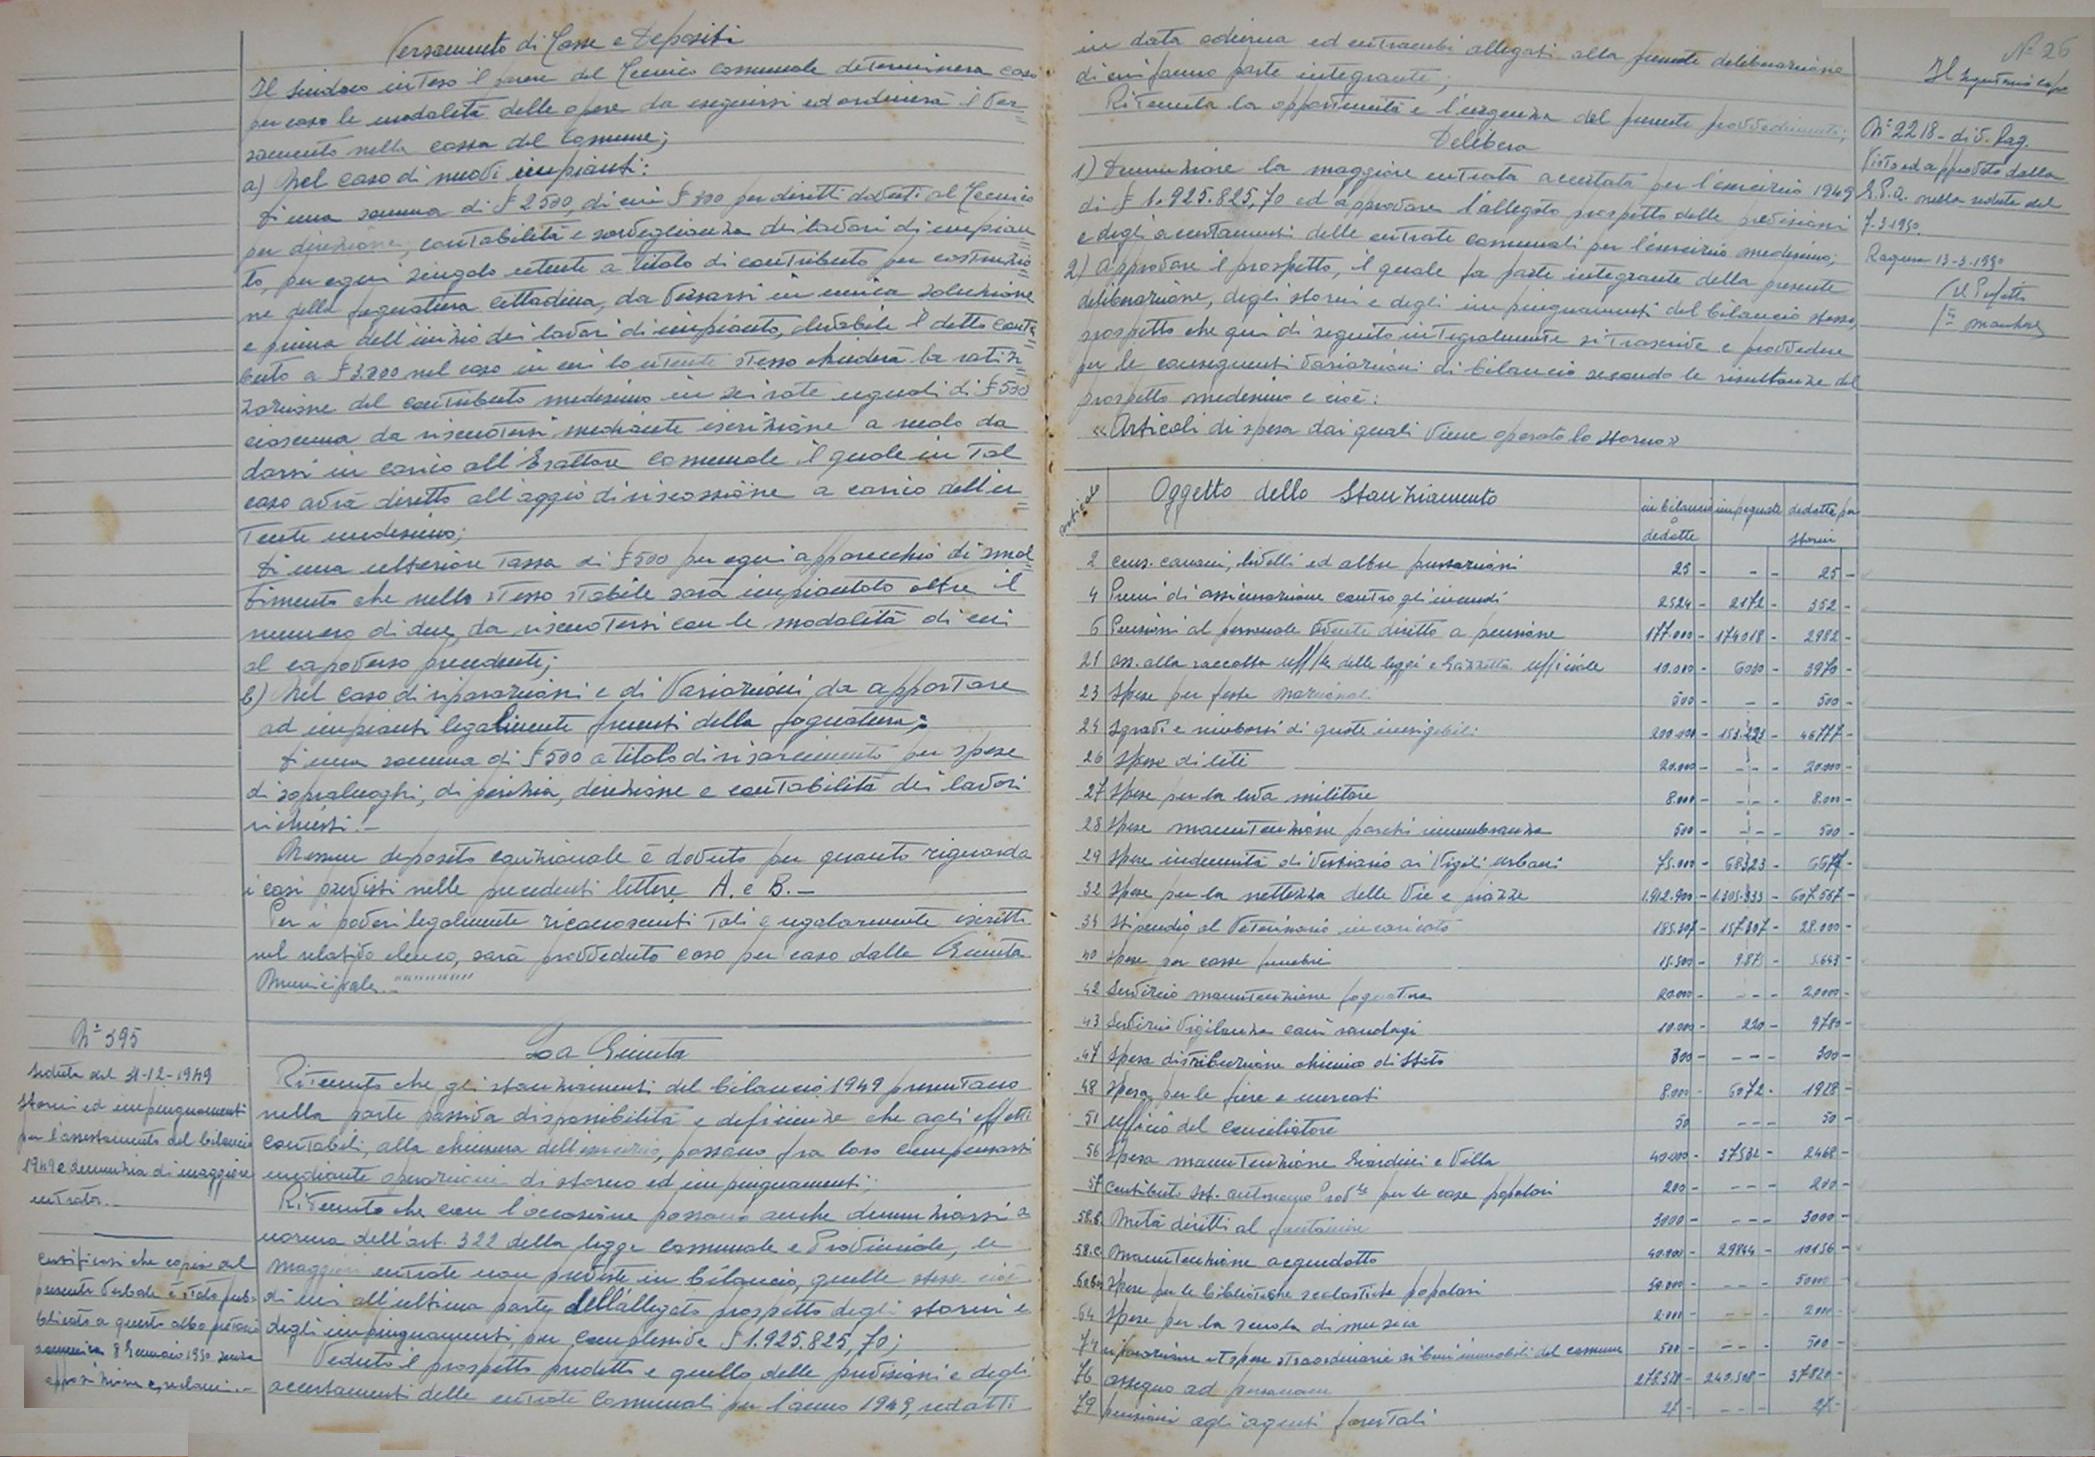 Versamento di Tasse e Depositi
Il Sindaco inteso il parere del Tecnico Comunale determinerà caso
per caso le modalità delle opere da eseguirsi ed ordinerà il ver
samento nella cassa del Comune;
a) Nel caso di nuovi impianti:
di una somma di £ 2500, di cui £ 300 per diritti dovuti al Tecnico
per direzione, contabilità e sorveglianza dei lavori di impian
to, per ogni singolo utente a titolo di contributo per costruzio
ne della fognatura cittadina, da versarsi in unica soluzione
e prima dell'inizio dei lavori di impianto, elevabile il detto contri
buto a £ 3000 nel caso in cui lo utente stesso chiederà la ratiz
zazione del contributo medesimo in sei rate uguali di £ 500
ciascuna da riscuotersi mediante iscrizione a ruolo da
darsi in carico all'Esattore Comunale il quale in tal
caso avrà diretto all'aggio di riscossione a carico dell'u
tente medesimo;
di una ulteriore tassa di £ 500 per ogni apparecchio di smal
timento che nello stesso stabile sarà impiantato oltre il
numero di due, da riscuotersi con le modalità di cui
al capoverso precedente;
b) Nel caso di riparazioni e di variazioni da apportare
ad impianti legalmente presenti della fognatura:
di una somma di £ 500 a titolo di risarcimento per spese
di sopraluoghi, di perizia, direzione e contabilità dei lavori
richiesti.-
Nessun deposito cauzionale è dovuto per quanto riguarda
i casi previsti nelle precedenti lettere A. e B.-
Per i poveri legalmente riconosciuti tali e regolarmente iscritti
nel relativo elenco, sarà provveduto caso per caso dalla Giunta
Municipale.-
N° 395
Seduta del 31-12-1949
Storni ed impinguamenti
per l'assestamento del bilancio
1949 e denunzia di maggiore
entrata.-
Certificasi che copia del
presente verbale è stata pub-
blicata a questo albo pretorio
domenica 8 Gennaio 1950 senza
opposizione e reclami.-
La Giunta
Ritenuto che gli stanziamenti del bilancio 1949 presentano
nella parte passiva disponibilità e deficienze che agli effetti
contabili, alla chiusura dell'esercizio, possano fra loro compensarsi
mediante operazioni di storno ed impinguamenti;
Ritenuto che con l'occasione possano anche denunziarsi a
norma dell'art. 322 della legge Comunale e Provinciale, le
maggiori entrate non previste in bilancio, quelle stesse cioè
di cui all'ultima parte dell'allegato prospetto degli storni e
degli impinguamenti, per complessive £ 1.925.825,70;
Veduto il prospetto predetto e quello delle previsioni e degli
accertamenti delle entrate Comunali per l'anno 1949, redatti
N° 26
Il Segretario capo
in data odierna ed entrambi allegati alla presente deliberazione
di cui fanno parte integrante;
Ritenuta la opportunità e l'urgenza del presente provvedimento;
Delibera
1) Denunziare la maggiore entrata accertata per l'esercizio 1949
di £ 1.925.825,70 ed approvare l'allegato prospetto delle previsioni
e degli accertamenti delle entrate comunali per l'esercizio medesimo;
2) Approvare il prospetto, il quale fa parte integrante della presente
deliberazione, degli storni e degli impinguamenti del bilancio stesso,
prospetto che qui di seguito integralmente si trascrive e provvedere
per le conseguenti variazioni di bilancio secondo le risultanze del
prospetto medesimo e cioè:
«Articoli di spesa dai quali viene operato lo storno»
N° 2218 - div. Rag.
Vista ed approvata dalla
G.P.A. nella seduta del
7.3.1950.
Ragusa 13-3-1950
Il Prefetto
articolo Oggetto dello Stanziamento in bilancio o dedotte impegnate dedotte per storni
2 Cens. canoni, livelli ed altre prestazioni 25 - - - 25 -
4 Premi di assicurazione contro gli incendi 2524 - 2172 - 352 -
6 Pensioni al personale avente diritto a pensione 177.000 - 174018 - 2982 -
21 ass. alla raccolta uff/le delle leggi e Gazzetta ufficiale 10.000 - 6030 - 3970 -
23 Spese per feste nazionali 500 - - - 500 -
24 Sgravi e rimborsi di quote inesigibili 200.000 - 153.223 - 46777 -
26 Spese di liti 20.000 - - - 20.000 -
27 Spese per la leva militare 8.000 - - - 8.000 -
28 Spese manutenzione parchi rimembranza 500 - - - 500 -
29 Spese indennità di vestiario ai vigili urbani 75.000 - 68323 - 6677 -
32 Spese per la nettezza delle vie e piazze 1.912.900 - 1.305.333 - 607.567 -
34 Stipendio al Veterinario incaricato 185.807 - 157.807 - 28.000 -
40 Spese per casse funebri 15.500 - 9.875 -
42 Servizio manutenzione fognatura 20.000 - - - 20000 -
43 Servizio vigilanza cani randagi 10.000 - 220 - 9780 -
47 Spesa distribuzione chinino di Stato 300 - - - 300 -
48 Spesa per le fiere e mercati 8.000 - 6072 - 1928 -
51 Ufficio del Conciliatore 50 - - - 50 -
56 Spesa manutenzione Giardini e Villa 40.000 - 37532 - 2468 -
57 Contributo Ist. autonomo Prov.le per le case popolari 200 - - - 200 -
58.b. Metà diritti al fontaniere 3000 - - - 3000 -
58.c. Manutenzione acquedotto 40.000 - 29844 - 10156 -
Spese per le biblioteche scolastiche popolari
64 Spese per la scuola di musica 2.000 - - - 2000 -
74 riparazione et spese straordinarie ai beni immobili del comune 500 - - - 500 -
76 assegno ad personam 278.328 - 240.508 - 37820 -
79 pensioni agli agenti forestali 27 - - - 27 -